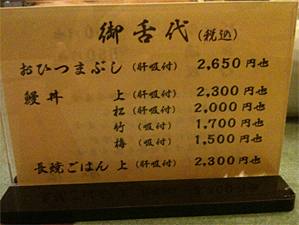 御舌代(税込)
おひつまぶし(肝吸付) 2,650円也
鰻丼 上(肝吸付) 2,300円也
松(肝吸付) 2,000円也
竹(吸付) 1,700円也
梅(吸付) 1,500円也
長焼ごはん 上(肝吸付) 2,300円也